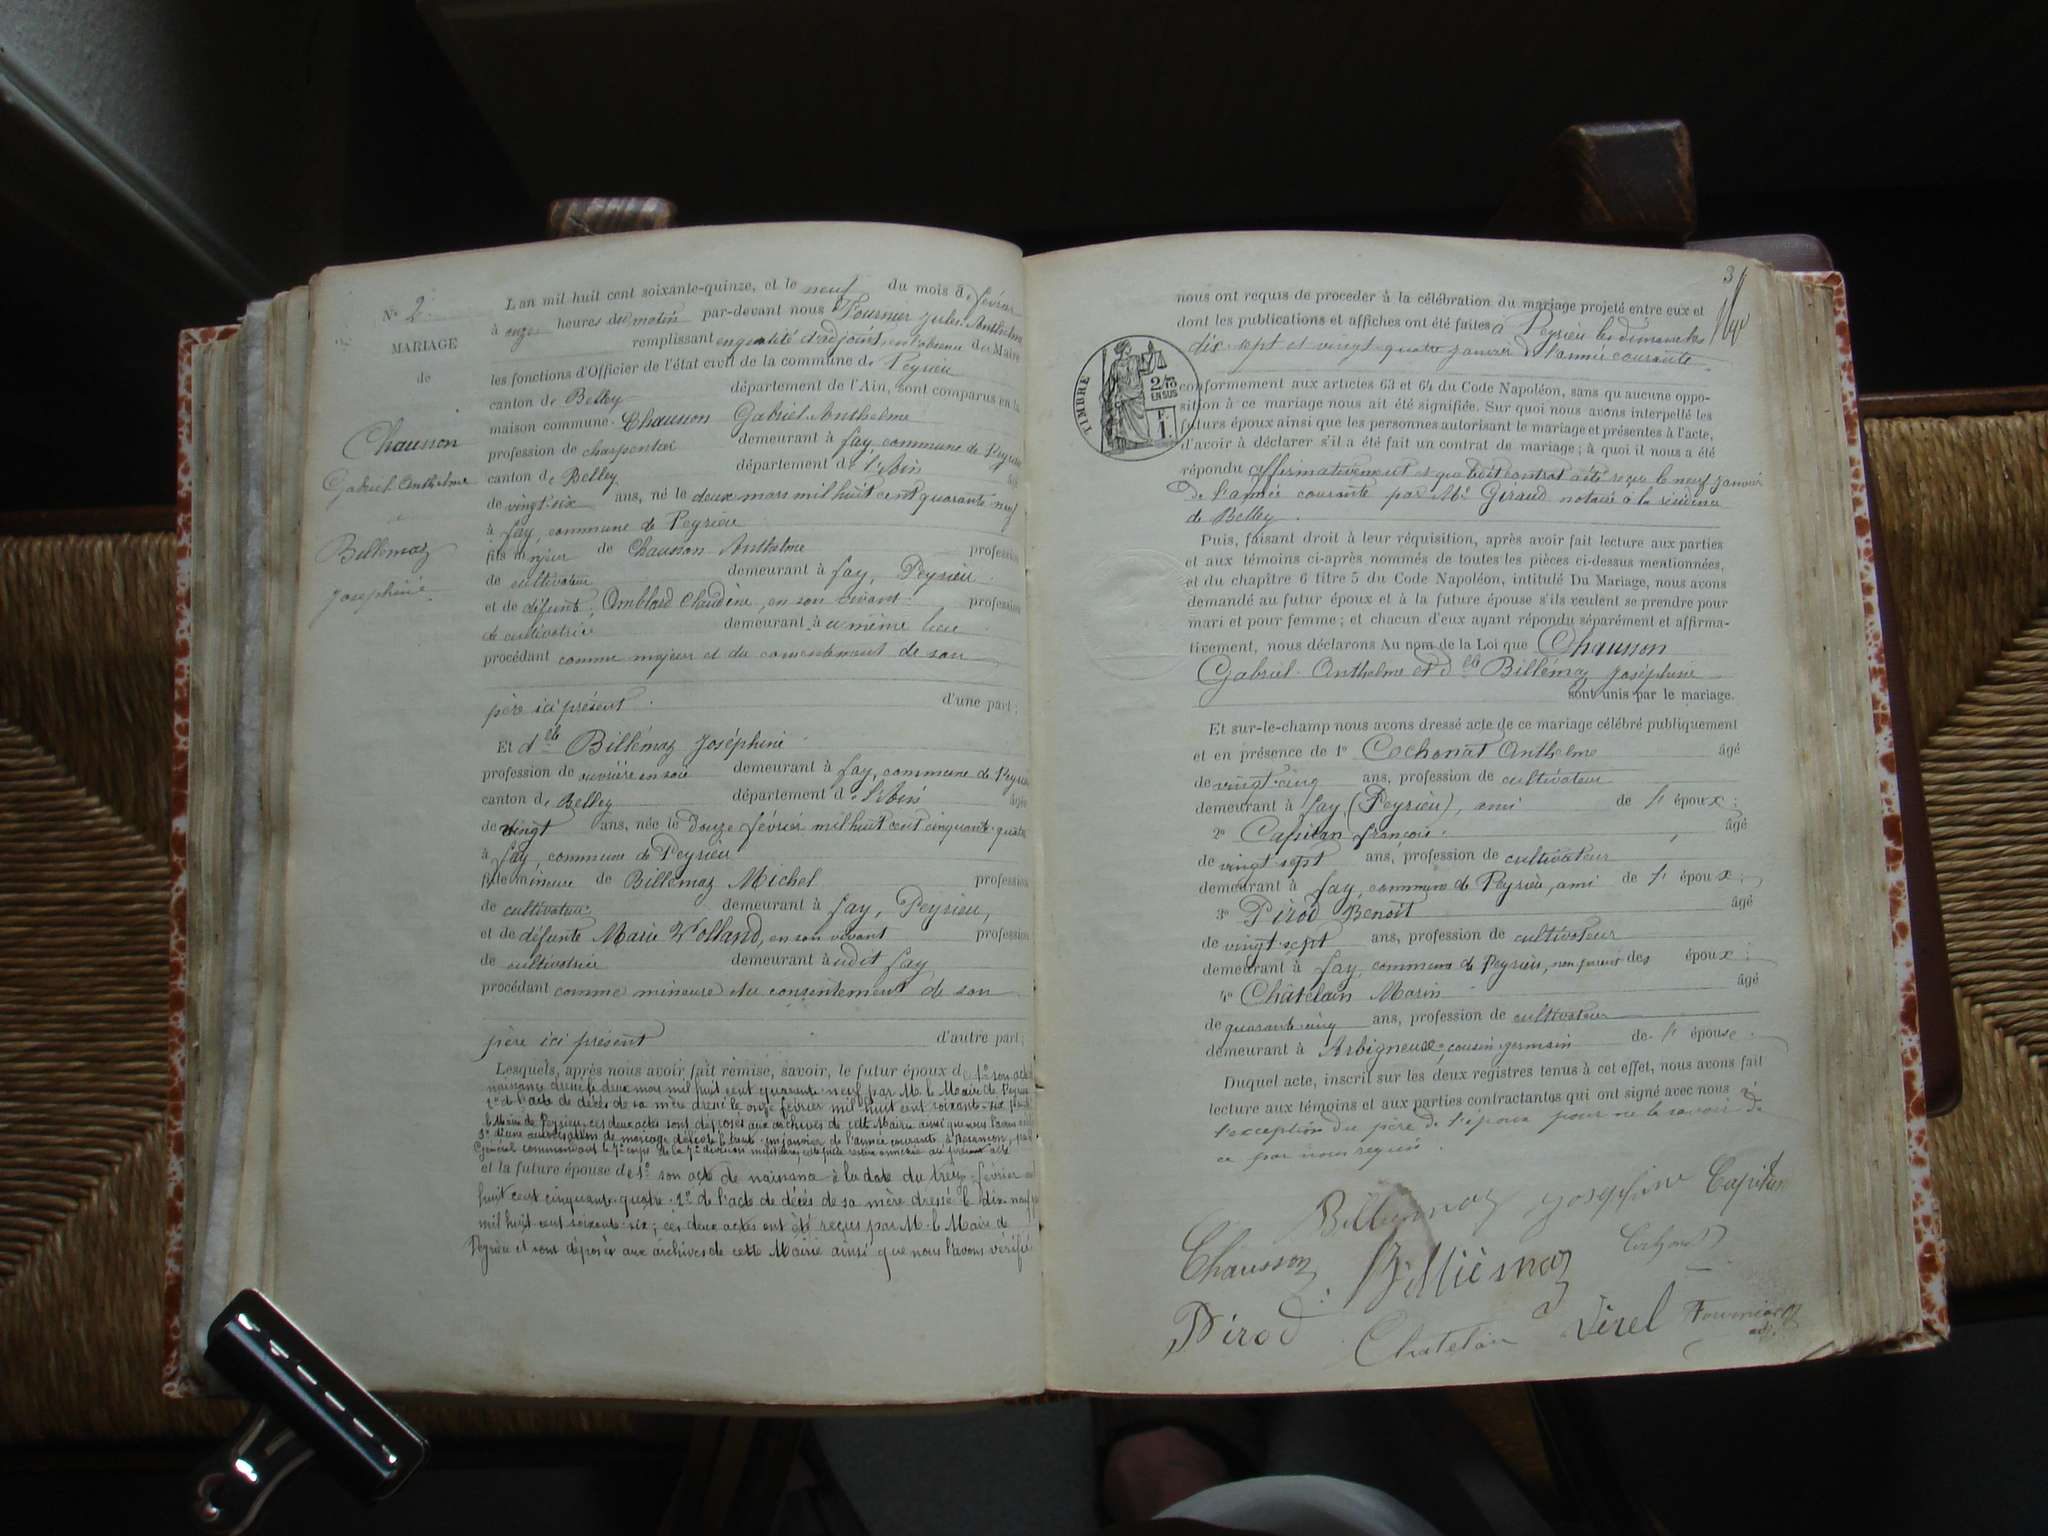 N° 2.
MARIAGE
de
Chausson
Gabriel Anthelme
Billémaz
Joséphine
L'an mil huit cent soixante-quinze, et le neuf du mois d février
à onze heures du matin par-devant nous Fournier Jules Anthelme
remplissant en qualité d'adjoint en l'absence du Maire
les fonctions d'Officier de l'état civil de la commune de Peyrieu
canton de Belley département de l'Ain, sont comparus en la
maison commune Chausson Gabriel Anthelme
profession de charpentier demeurant à fay, commune de Peyrieu
canton de Belley département de l'Ain
de vingt-six ans, né le deux mars mil huit cent quarante-neuf
à fay, commune de Peyrieu
fils majeur de Chausson Anthelme profession
de cultivateur demeurant à fay, Peyrieu.
et de défunte Amblard Claudine, en son vivant profession
de cultivatrice demeurant à u même lieu
procédant comme majeur et du consentement de son
père ici présent. d'une part;
Et dlle Billémaz Joséphine
profession de ouvrière en soie demeurant à fay, commune de Peyrieu
canton de Belley département de l'Ain âgée
de vingt ans, née le douze février mil huit cent cinquante-quatre
à fay, commune de Peyrieu
fille mineure de Billémaz Michel profession
de cultivateur demeurant à fay, Peyrieu,
et de défunte Marie Volland, en son vivant profession
de cultivatrice demeurant à udit fay
procédant comme mineure et du consentement de son
père ici présent d'autre part;
Lesquels, après nous avoir fait remise, savoir, le futur époux de 1° son acte
naissance dressé le deux mars mil huit cent quarante-neuf par M. le Maire de Peyrieu
2° de l'acte de décès de sa mère dressé le onze février mil huit cent soixante-six
le Maire de Peyrieu; ces deux actes sont déposés aux archives de cette Mairie ainsi que nous l'avons
3° d'une autorisation de mariage délivrée le trente-un janvier de l'année courante, à Besançon, par
Général commandant le 7e corps de la 7e division militaire, cette pièce restera annexée au présent acte
et la future épouse de 1° son acte de naissance à la date du treize février
huit cent cinquante-quatre. 2° de l'acte de décès de sa mère dressé le dix-neuf
mil huit cent soixante-six; ces deux actes ont été reçus par M. le Maire de
Peyrieu et sont déposés aux archives de cette Mairie ainsi que nous l'avons vérifié
3
nous ont requis de procéder à la célébration du mariage projeté entre eux et
dont les publications et affiches ont été faites à Peyrieu les dimanches
dix-sept et vingt-quatre janvier de l'année courante
TIMBRE
2/10
EN SUS
F.
1.
conformément aux articles 63 et 64 du Code Napoléon, sans qu'aucune oppo-
sition à ce mariage nous ait été signifiée. Sur quoi nous avons interpellé les
futurs époux ainsi que les personnes autorisant le mariage et présentes à l'acte,
d'avoir à déclarer s'il a été fait un contrat de mariage; à quoi il nous a été
répondu affirmativement et que ledit contrat a été reçu le neuf janvier
de l'année courante par Me Giraud notaire à la résidence
de Belley.
Puis, faisant droit à leur réquisition, après avoir fait lecture aux parties
et aux témoins ci-après nommés de toutes les pièces ci-dessus mentionnées,
et du chapitre 6 titre 5 du Code Napoléon, intitulé Du Mariage, nous avons
demandé au futur époux et à la future épouse s'ils veulent se prendre pour
mari et pour femme; et chacun d'eux ayant répondu séparément et affirma-
tivement, nous déclarons Au nom de la Loi que Chausson
Gabriel Anthelme et dlle Billémaz Joséphine
sont unis par le mariage.
Et sur-le-champ nous avons dressé acte de ce mariage célébré publiquement
et en présence de 1° Cochonat Anthelme âgé
de vingt-cinq ans, profession de cultivateur
demeurant à fay (Peyrieu), ami de l' époux;
2° Capitan françois. âgé
de vingt-sept ans, profession de cultivateur
demeurant à fay, commune de Peyrieu, ami de l' époux;
3° Pirod Benoît âgé
de vingt-sept ans, profession de cultivateur
demeurant à fay, commune de Peyrieu, non parent des époux;
4° Châtelain Marin âgé
de quarante-cinq ans, profession de cultivateur
demeurant à Arbigneux, cousin germain de l' épouse.
Duquel acte, inscrit sur les deux registres tenus à cet effet, nous avons fait
lecture aux témoins et aux parties contractantes qui ont signé avec nous à
l'exception du père de l'époux pour ne le savoir de
ce par nous requis.
Billemaz Josephine Capitan
Chausson Billièmaz Cochonat
Pirod Chatelain Virel Fournier
adj.